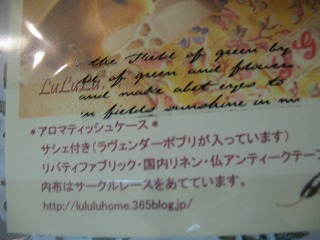 the Field of green by
of green and flowers
LuLuLu.
and make abet eyes to
fields sunshine in m
*アロマティッシュケース*
サシェ付き(ラヴェンダーポプリが入っています)
リバティファブリック・国内リネン・仏アンティークテープ
内布はサークルレースをあてています。
http://lululuhome.365blog.jp/